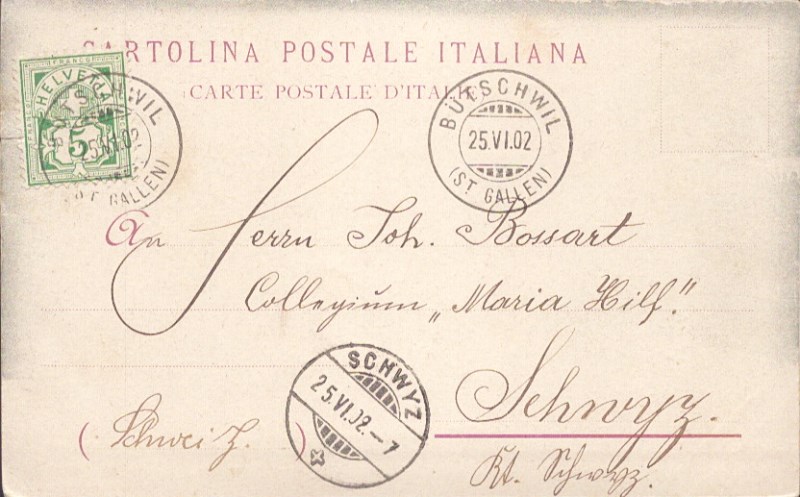 CARTOLINA POSTALE ITALIANA
(CARTE POSTALE D'ITALIE
FRANCO
HELVETIA
5
BÜTSCHWIL
25.VI.02
(ST. GALLEN)
BÜTSCHWIL
25.VI.02
(ST GALLEN)
An Herrn Joh. Bossart
Collegium „Maria Hilf."
SCHWYZ
25.VI.02.–7
Schwyz.
(Schweiz.)
Kt. Schwyz.